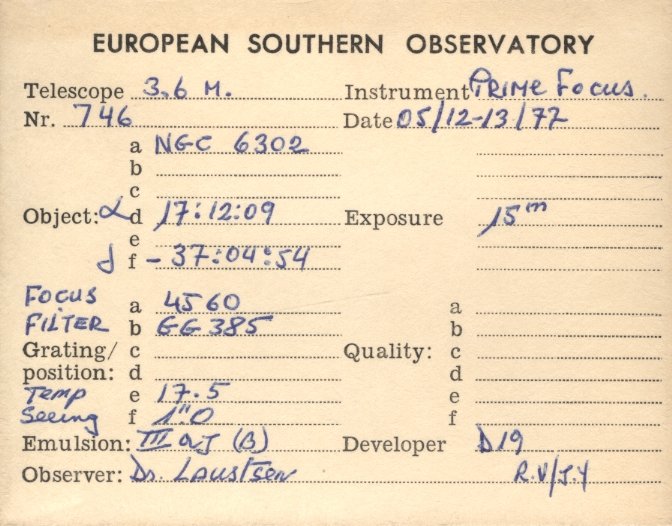 EUROPEAN SOUTHERN OBSERVATORY
Telescope 3.6 M. Instrument PRIME FOCUS.
Nr. 746 Date 05/12-13/77
a NGC 6302
b
c
Object: α d 17:12:09 Exposure 15m
e
δ f - 37:04:54
FOCUS a 4560 a
FILTER b GG 385 b
Grating/ c Quality: c
position: d d
Temp e 17.5 e
Seeing f 1"0 f
Emulsion: III aJ (B) Developer D19
Observer: Dr. Laustsen R.V/J.Y